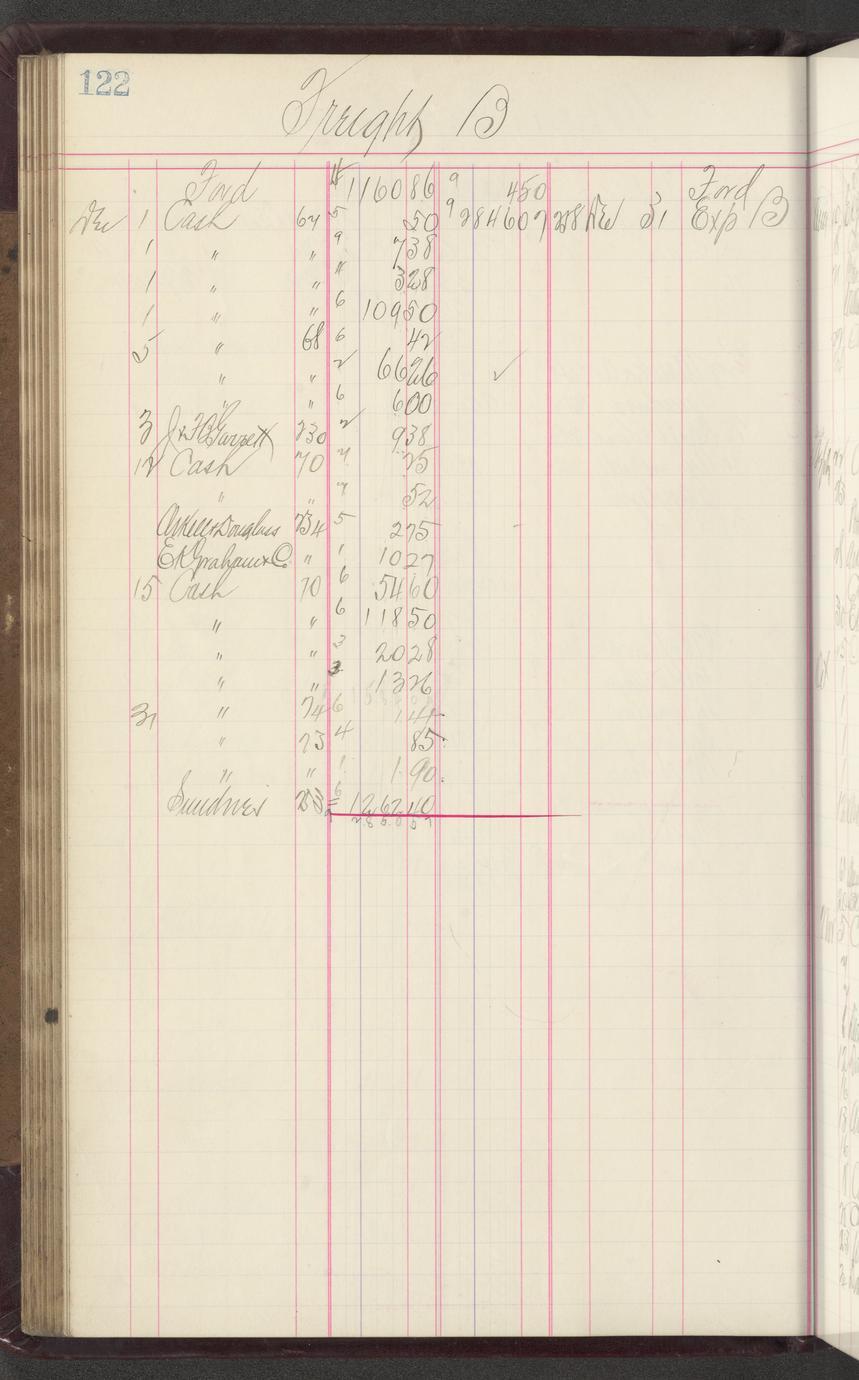 122
Freight B
Ford 15 1160 86 9 4 50 Ford
Dec 1 Cash 64 5 50 9 2846 07 258 Dec 31 Exp B
1 " " 9 7 38
1 " " " 3 28
1 " " 6 109 50
5 " 68 6 42
" " 2 66 26
" " 6 6 00
3 230 2 9 38
12 Cash 70 7 25
" " 7 52
Askew & Douglass 234 5 2 75
E K Graham & Co. " 1 10 27
15 Cash 70 6 54 60
" " 6 118 50
" " 3 20 28
" " 3 13 26
31 " 74 6 1 44
" 73 4 85
" " 1 1 90
Sundries 253 6 1262 40
2850 57